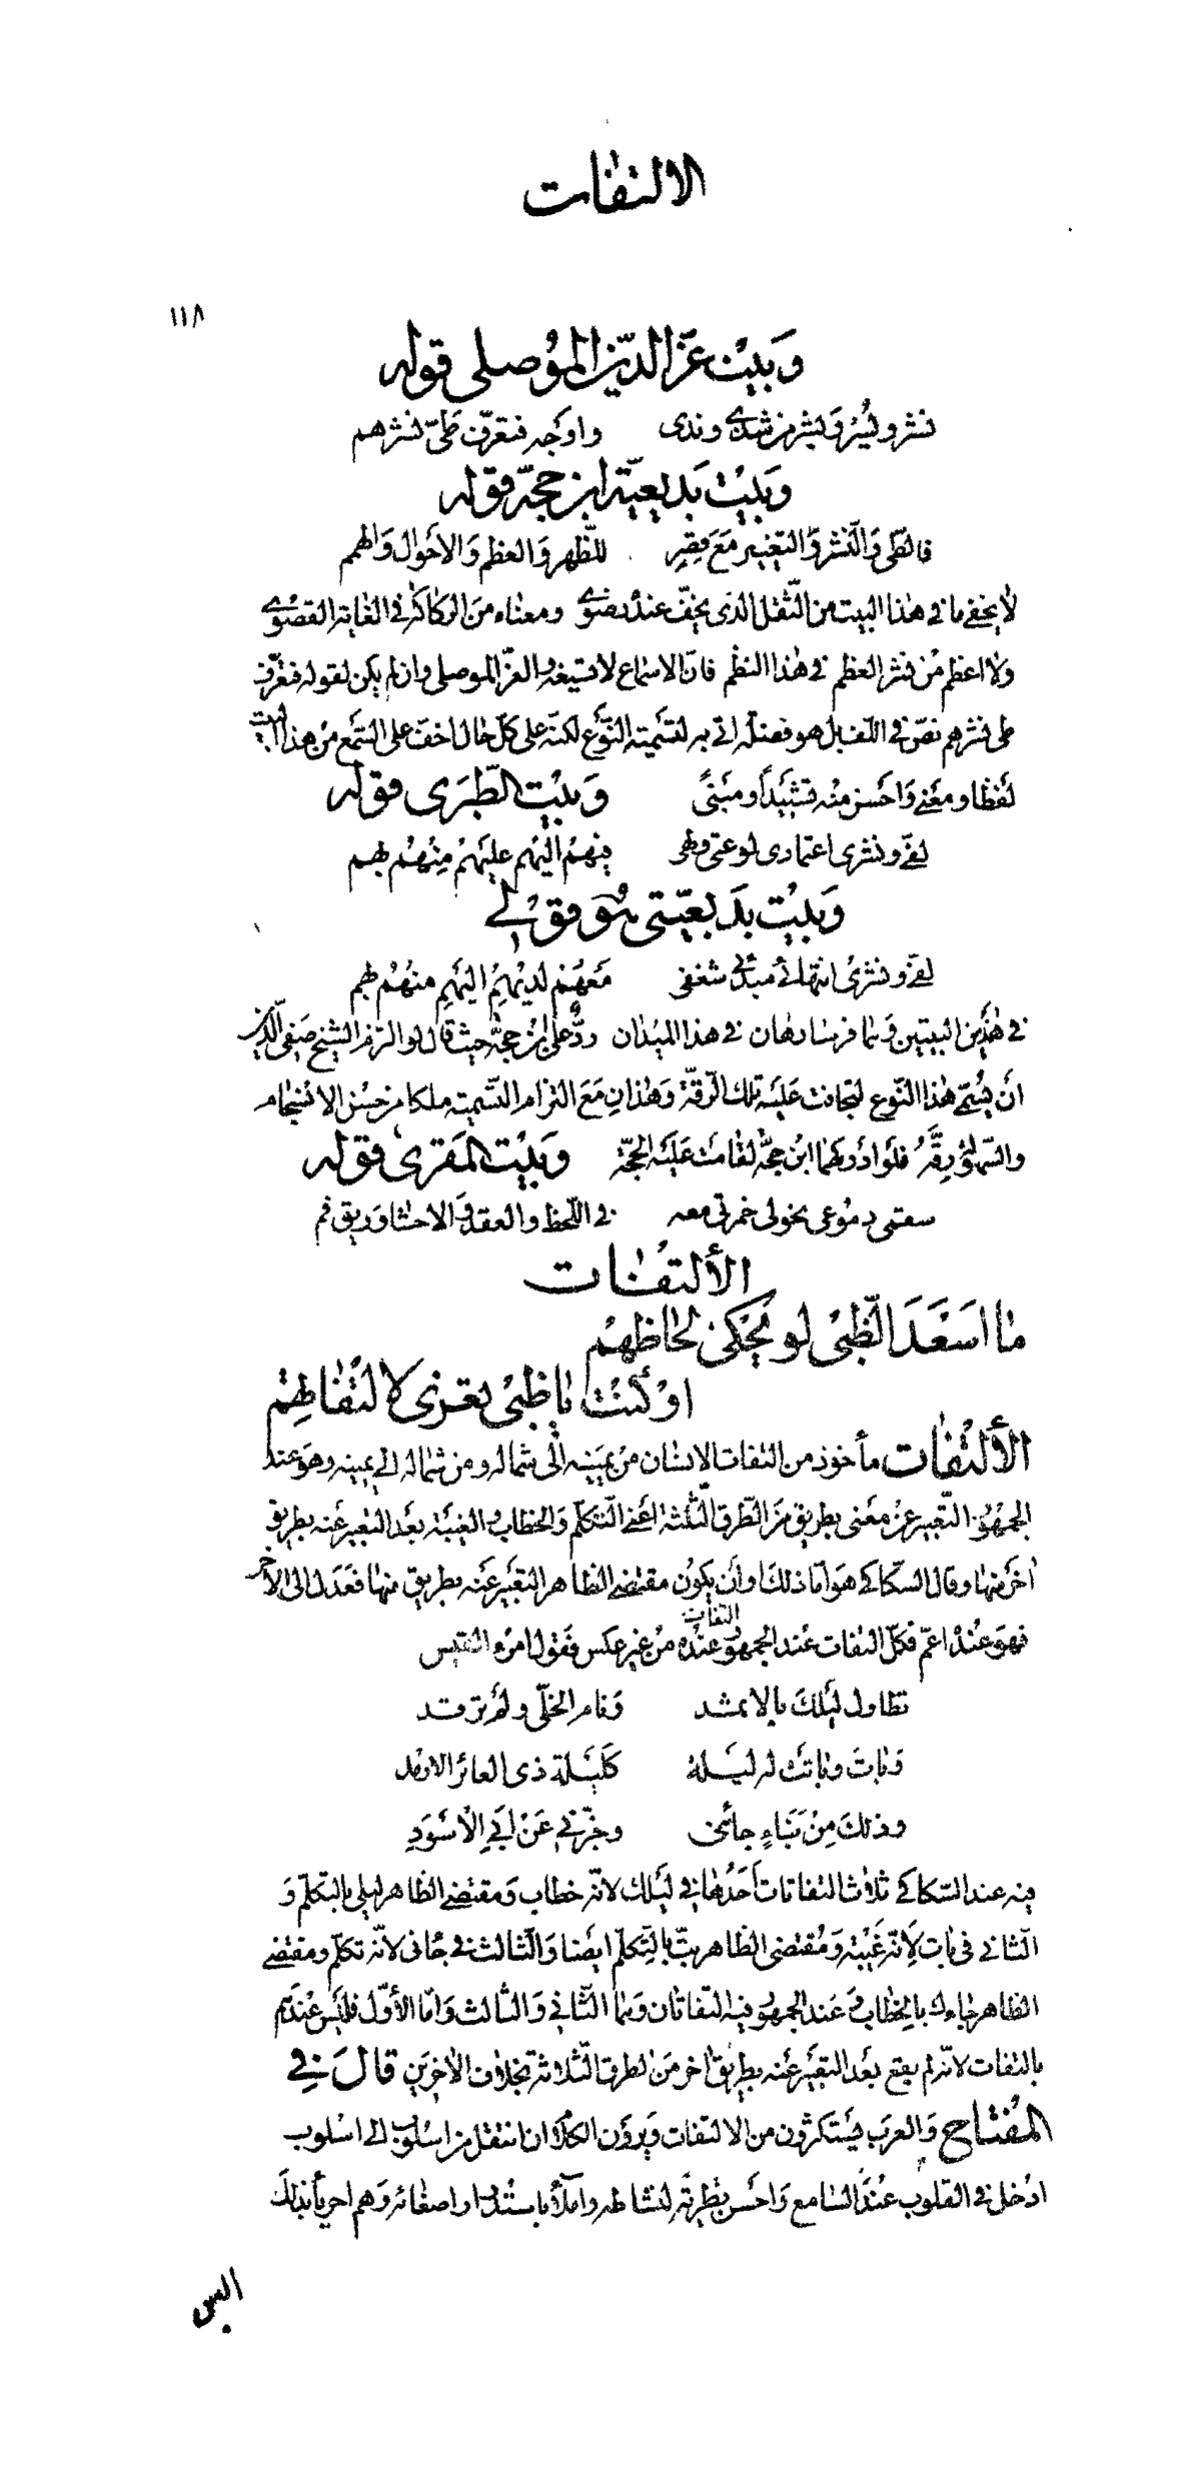 الالتفات
١١٨
وبيت عزّ الدّين الموصلى قوله
نشر ويسر وبشر من شذى وندى واوجه فتعرّف طىّ نشرهم
وبيت بديعيّة ابن حجّة قوله
فالطّى والنّشر والتّغيير مع قصر للظّهر والعظم والاحوال والهمم
لا يخفى ما فى هذا البيت من الثّقل الذى يخفّ عنده رضوى ومعناه من الركاكة فى الغاية القصوى
ولا اعظم من نشر العظم فى هذا النظم فانّ الاسماع لا تسيغه والعزّ الموصلى وان لم يكن لقوله فتعرّف
طى نشرهم نصّ فى اللف بل هو فضلة اتى به لتسمية النّوع لكنّه على كلّ حال اخفّ على السّمع من هذا البيت
لفظا ومعنى واحسن منه تشييدا ومبنى وبيت الطّبرى قوله
لفّى ونشرى اعتمادى لوعتى ولهى فيهم اليهم عليهم منهم بهم
وبيت بديعيّتى هو قولى
لفّى ونشرى انتهائى مبدئى شغفى معهم لديهم اليهم منهم بهم
فى هذين البيتين وهما فرسا رهان فى هذا الميدان ردّ على ابن حجّة حيث قال لو التزم الشيخ صفى الدّين
أن يسمّى هذا النّوع لتجافت عليه تلك الرّقّة وهذان مع التزام التّسمية ملكا من حسن الانسجام
والسّهولة رقّه فلو ادركهما ابن حجّة لقامت عليه الحجّة وبيت المقرى قوله
سقتمى دموعى نحولى خمرتى معه فى اللّحظ والعقد والاحشا وريق فم
الألتفات
ما اسعد الظّبى لو يحكى لحاظهم
او كنت يا ظبى تعزى لالتفاتهم
الألتفات مأخوذ من التفات الانسان من يمينه الى شماله ومن شماله الى يمينه وهو عند
الجمهور التّعبير عن معنى بطريق من الطّرق الثّلثة اعنى التّكلّم والخطاب والغيبة بعد التعبير عنه بطريق
أخر منها وقال السّكاكى هو امّا ذلك او أن يكون مقتضى الظاهر التعبير عنه بطريق منها فعدل الى الآخر
فهو عنده اعمّ فكلّ التفات عند الجمهور التفات عنده من غير عكس فقول امرء القيس
تطاول ليلك بالاثمد ونام الخلّى ولم ترقد
وبات وباتت له ليلة كليلة ذى العائر الارمد
وذلك من نباء جائنى وخبّرته عن أبى الأسود
فيه عند السّكاكى ثلاث التفاتات احدها فى ليلك لانّه خطاب ومقتضى الظاهر ليلى بالتكلّم و
الثانى فى بات لانّه غيبة ومقتضى الظاهر بتّ بالتكلّم ايضا والثالث فى جائنى لانّه تكلّم ومقتضى
الظاهر جاءك بالخطاب وعند الجمهور فيه التفاتان وهما الثّانى والثالث وامّا الأوّل فليس عندهم
بالتفات لانّه لم يقع بعد التعبير عنه بطريق اخر من الطرق الثّلاثة بخلاف الاخرين قال فى
المفتاح والعرب يستكثرون من الالتفات ويرون الكلام اذا انتقل من اسلوب الى اسلوب
ادخل فى القلوب عند السّامع واحسن تطرية لنشاطه واملأ باستدرار اصغائه وهم احرياء بذلك
اليس